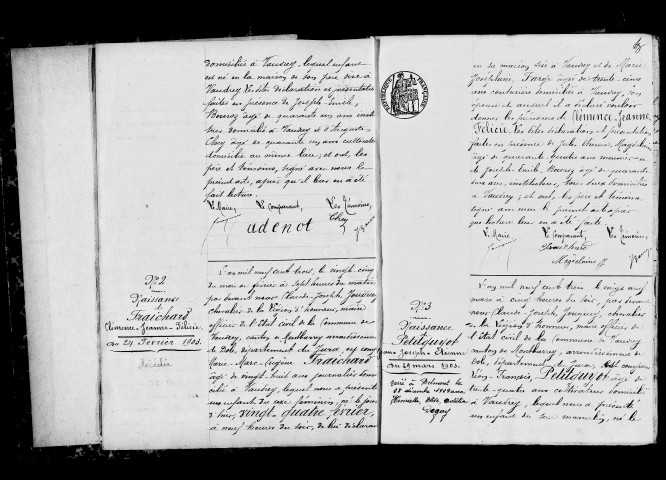 domicilié à Vaudrey, lequel enfant
est né en la maison de son père sise à
Vaudrey. Lesdites déclaration et présentation
faites en présence de Joseph Emile
Bourez âgé de quarante six ans insti-
tuteur domicilié à Vaudrey et d'Auguste
âgé de quarante six ans cultivateur
domicilié au même lieu; et ont, les
père et témoins, signé avec nous le
présent acte, après qu'il leur en a été
fait lecture.
Le Maire, Le Comparant, Les Témoins,
adenot
No 2
Naissance
de
Fraichard
Clémence-Jeanne-Félicie
du 24 Février 1903.
Décédée
L'an mil neuf cent trois le vingt-cinq
du mois de février à sept heures du matin
par devant nous Claude-Joseph Jouffroy
chevalier de la Légion d'honneur, maire
officier de l'Etat civil de la Commune de
Vaudrey, canton de Montbarrey arrondissement
de Dole, département du Jura, est comparu
Marie-Marc-Eugène Fraichard
âgé de vingt-huit ans journalier domi-
cilié à Vaudrey, lequel nous a présenté
un enfant du sexe féminin, né le jour
d'hier, vingt-quatre février,
à neuf heures du soir, de lui déclarant
RÉPUBLIQUE FRANÇAISE
en sa maison sise à Vaudrey et de Marie
Joséphine, Farge âgée de trente-cinq
ans couturière domiciliée à Vaudrey, son
épouse et auquel il a déclaré vouloir
donner les prénoms de Clémence-Jeanne
Félicie. Lesdites déclaration et présentation
faites en présence de Jules Etienne, Magdelaine
âgé de quarante quatre ans menuisier et
de Joseph Emile, Bourez âgé de quarante
six ans, instituteur, tous deux domiciliés
à Vaudrey; et ont, les père et témoins,
signé avec nous le présent acte après
que lecture leur en a été faite.
Le Maire, Le Comparant, Les Témoins,
Fraichard
Magdelaine
No 3
Naissance
Petitguyot
Joseph-Etienne
du 29 mars 1903.
marié à
L'an mil neuf cent trois le vingt neuf
mars à cinq heures du soir, par devant
nous Claude-Joseph, Jouffroy, chevalier
de la Légion d'honneur, maire officier de
l'Etat civil de la Commune de Vaudrey
canton de Montbarrey, arrondissement de
Dole, département du Jura, est comparu
Léon-François, Petitguyot âgé de
trente-quatre ans cultivateur domicilié
à Vaudrey, lequel nous a présenté
un enfant du sexe masculin, né le